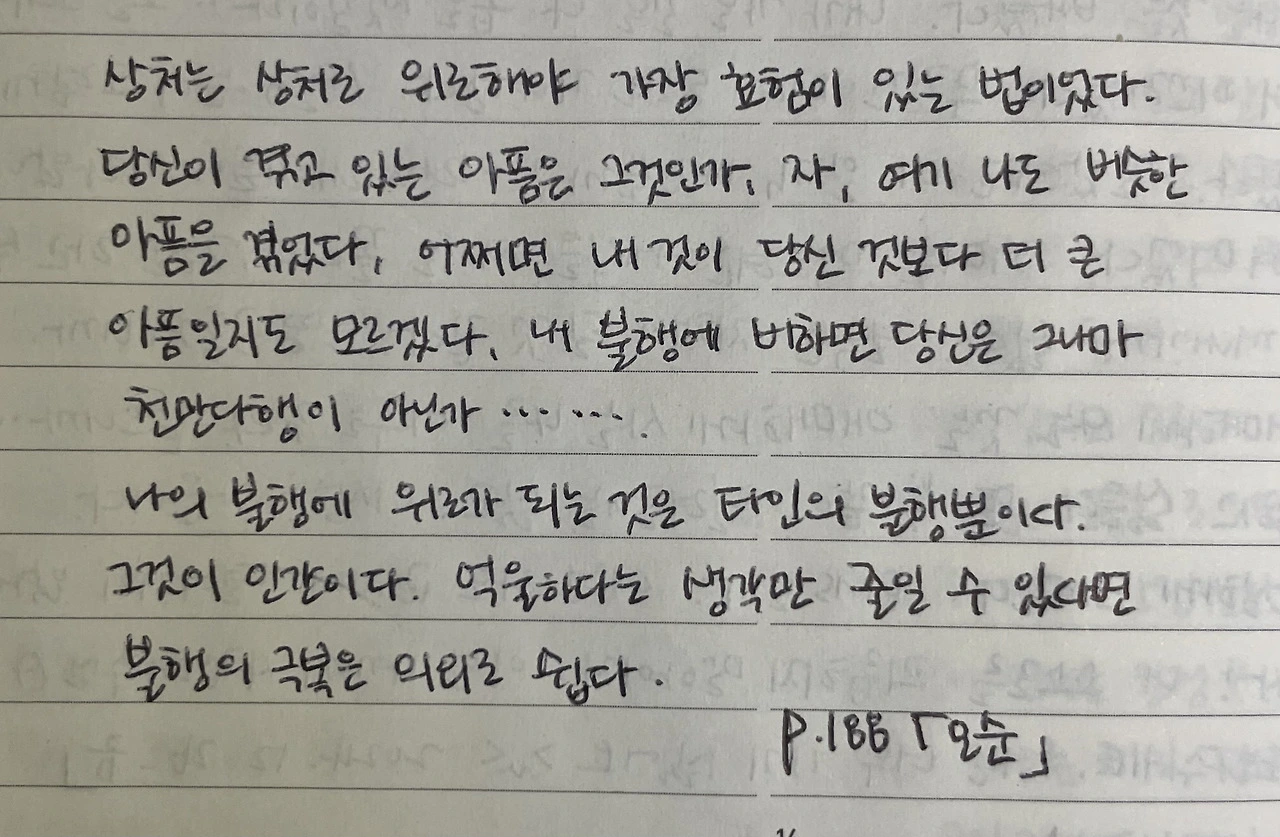 상처는 상처로 위로해야 가장 효험이 있는 법이었다.
당신이 겪고 있는 아픔은 그것인가, 자, 여기 나도 비슷한
아픔을 겪었다, 어쩌면 내 것이 당신 것보다 더 큰
아픔일지도 모르겠다, 내 불행에 비하면 당신은 그나마
천만다행이 아닌가 ‥‥‥.
나의 불행에 위로가 되는 것은 타인의 불행뿐이다.
그것이 인간이다. 억울하다는 생각만 줄일 수 있다면
불행의 극복은 의외로 쉽다.
p.188 「모순」